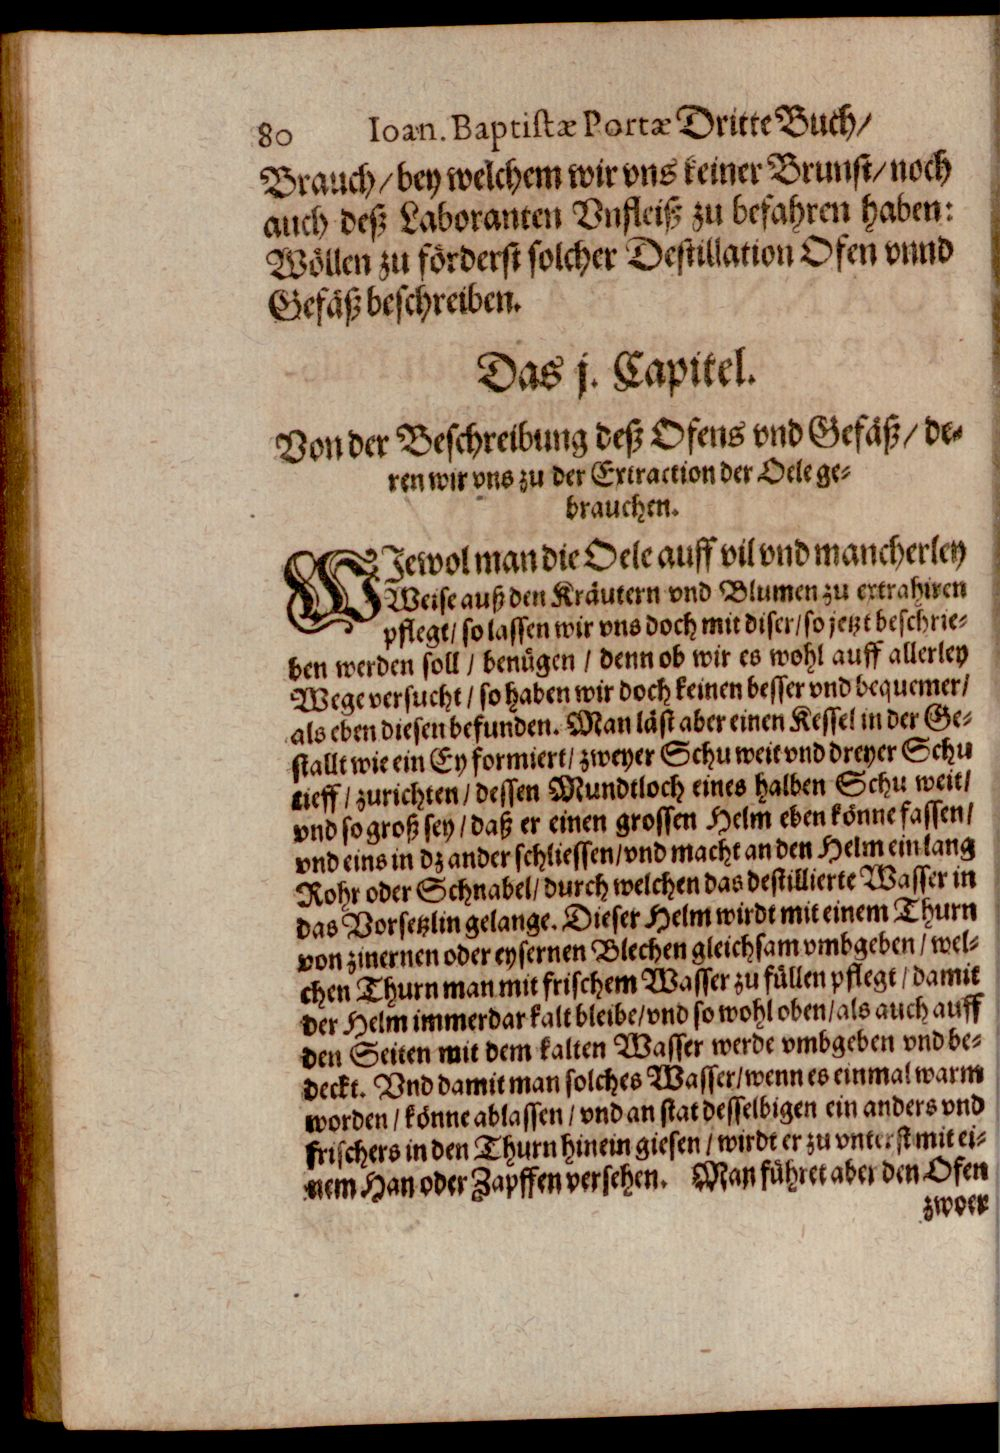 80 Ioan. Baptistæ Portæ Dritte Buch/
Brauch/ bey welchem wir vns keiner Brunst/ noch
auch deß Laboranten Vnfleiß zu befahren haben:
Wöllen zu förderst solcher Destillation Ofen vnnd
Gefäß beschreiben.
Das j. Capitel.
Von der Beschreibung deß Ofens vnd Gefäß/ de-
ren wir vns zu der Extraction der Oele ge-
brauchen.
WJewol man die Oele auff vil vnd mancherley
Weise auß den Kräutern vnd Blumen zu extrahiren
pflegt/ so lassen wir vns doch mit diser/ so jetzt beschrie-
ben werden soll/ benügen/ denn ob wir es wohl auff allerley
Wege versucht/ so haben wir doch keinen besser vnd bequemer/
als eben diesen befunden. Man läst aber einen Kessel in der Ge-
stallt wie ein Ey formiert/ zweyer Schu weit vnd dreyer Schu
tieff/ zurichten/ dessen Mundtloch eines halben Schu weit/
vnd so groß sey/ daß er einen grossen Helm eben könne fassen/
vnd eins in dz ander schliessen/ vnd macht an den Helm ein lang
Rohr oder Schnabel/ durch welchen das destillierte Wasser in
das Vorsetzlin gelange. Dieser Helm wirdt mit einem Thurn
von zinernen oder eysernen Blechen gleichsam vmbgeben/ wel-
chen Thurn man mit frischem Wasser zu füllen pflegt/ damit
der Helm immerdar kalt bleibe/ vnd so wohl oben/ als auch auff
den Seiten mit dem kalten Wasser werde vmbgeben vnd be-
deckt. Vnd damit man solches Wasser/ wenn es einmal warm
worden/ könne ablassen/ vnd an stat desselbigen ein anders vnd
frischers in den Thurn hinein giesen/ wirdt er zu vnterst mit ei-
nem Han oder Zapffen versehen. Man führet aber den Ofen
zwoer